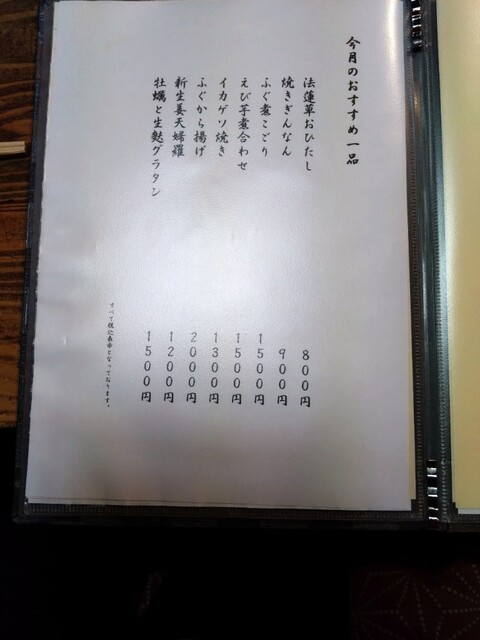 今月のおすすめ一品
法蓮草おひたし 800円
焼きぎんなん 900円
ふぐ煮こごり 1500円
えび芋煮合わせ 1500円
イカゲソ焼き 1300円
ふぐから揚げ 2000円
新生姜天婦羅 1200円
牡蠣と生麩グラタン 1500円
すべて税込表示となっております。